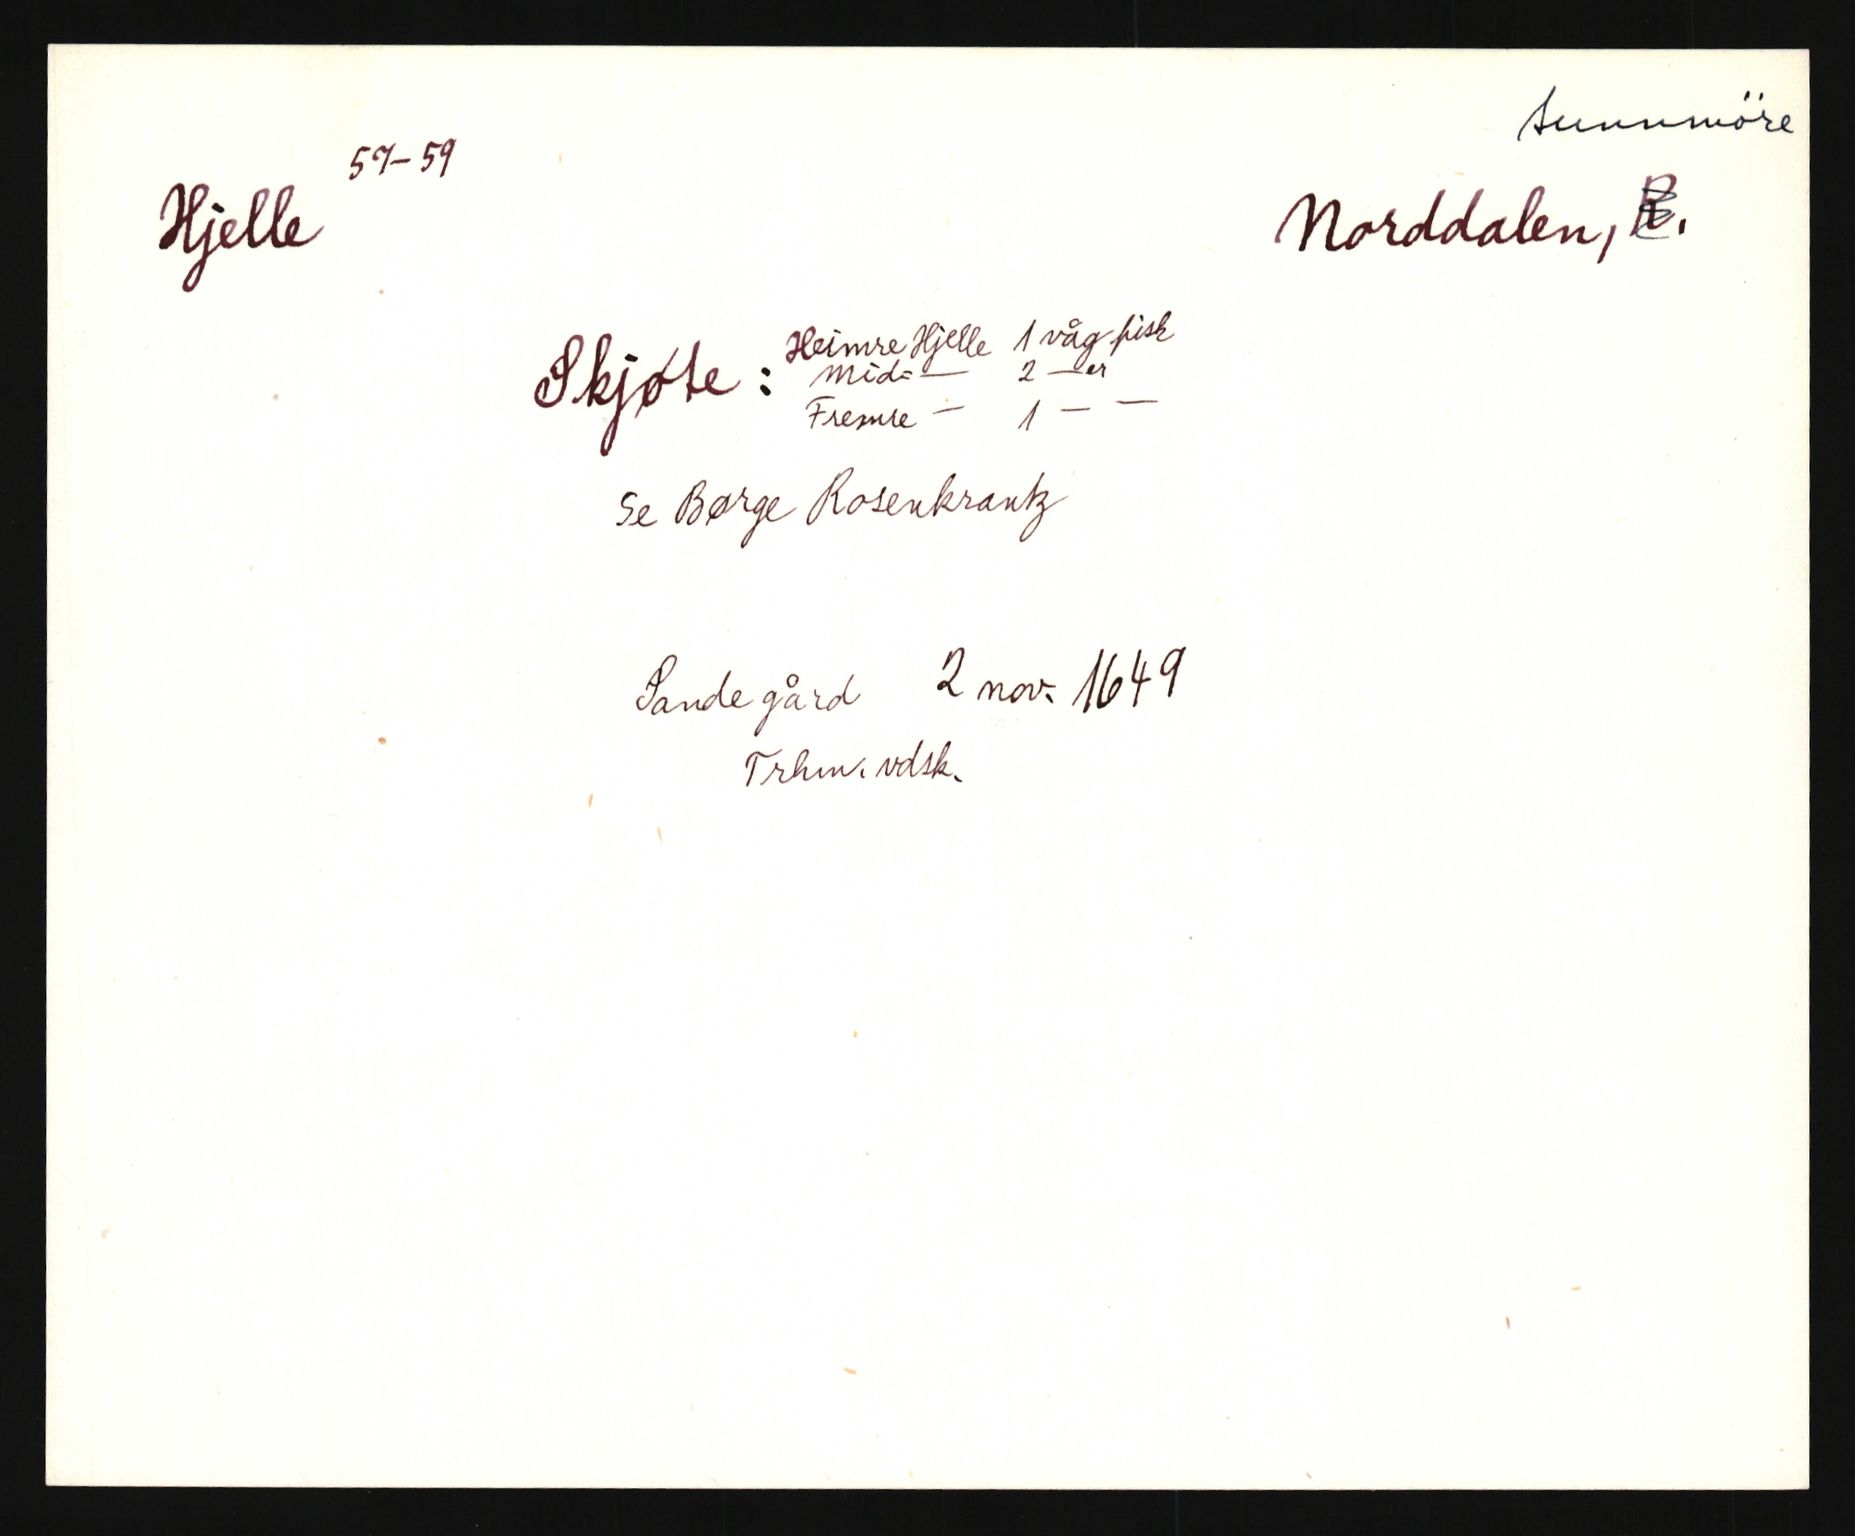 Sunnmöre
Hjelle 57-59
Norddalen, R.
Skjøte : Heimre Hjelle 1 våg fisk
Mid= — 2 —er
Fremre — 1 — —
Se Børge Rosenkrantz
Sande gård 2 nov. 1649
Trhm. vdsk.